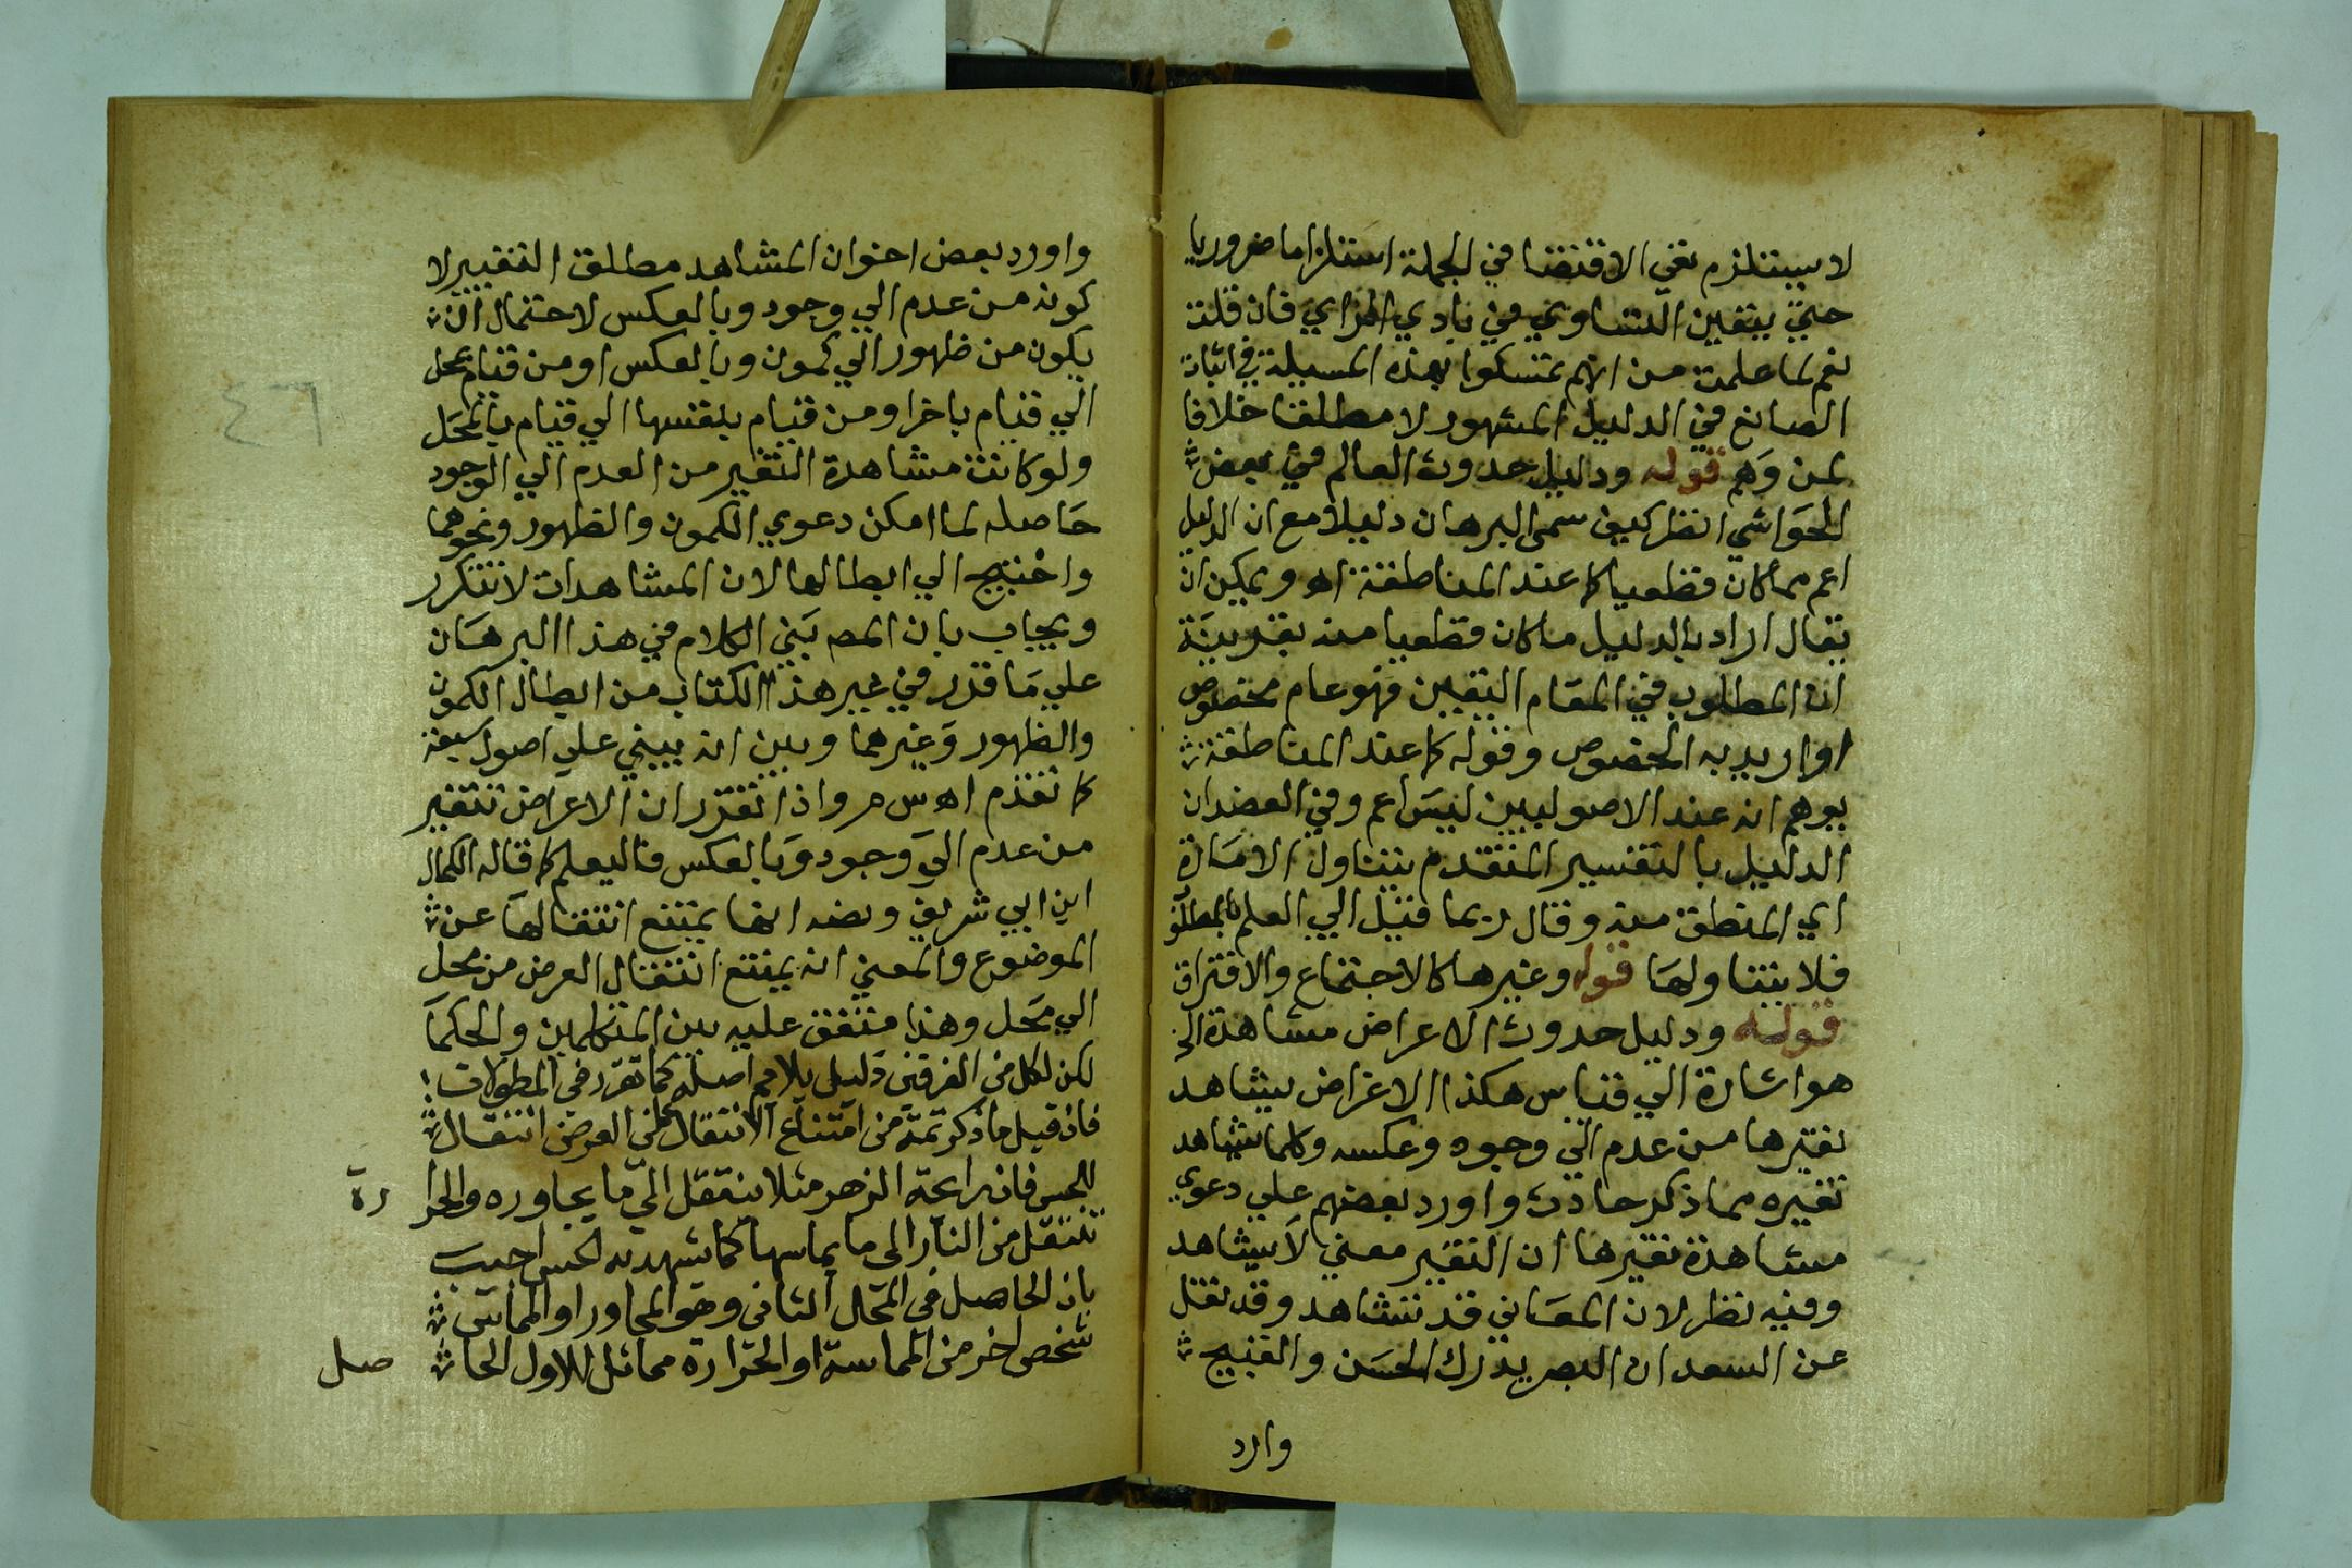 لا يستلزم نفي الاقتضا في الجملة استلزاما ضروريا
حتي يتقين التساوي في بادي الراي فان قلت
نعم لما علمت من انهم تمسكوا بهذه المسيلة في اثبات
الصانع في الدليل المشهور لا مطلقا خلافا
لمن وَهم قوله ودليل حدوث العالم في بعض
الحَوَاشي انظر كيف سمي البرهان دليلا مع ان الدليل
اعم مما كان قطعيا كما عند المناطقة اه ويمكن ان
يقال اراد بالدليل ما كان قطعيا منه بقرينة
ان المطلوب في المقام اليقين فهو عام مخصوص
او اريد به الخصوص وقوله كما عند المناطقة
يوهم انه عند الاصوليين ليسَ اعم وفي العضد ان
الدليل بالتفسير المتقدم يتناول الامَارة
اي المنطق منه وقال ربما قيل الي العلم بالمطلو
فلا يتناولهَا قوله وغيرها كالاجتماع والافتراق
قوله ودليل حدوث الاعراض مشاهدة الخ
هو اشارة الي قياس هكذا الاعراض يشاهد
تغيرها من عدم الي وجود وعكسه وكلما يشاهد
تغيره مما ذكر حادث واورد بعضهم علي دعوي
مشاهدة تغيرها ان التغير معني لا يشاهد
وفيه نظر لان المعَاني قد تشاهد وقد نقل
عن السعد ان البصر يدرك الحسَن والقبيح
وارد
واورد بعض اخوان المشاهد مطلق التغيير لا
كونه من عدم الي وجود وبالعكس لاحتمال ان
يكون من ظهور الي كمون وبالعكس او من قيام بمحل
الي قيام باخر او من قيام بنفسها الي قيام بالمحَل
ولو كانت مشاهدة التغير من العدم الي الوجود
حَاصله لما امكن دعوي الكمون والظهور ونحوهما
واحْتيج الي ابطالها لان المشاهدات لا تتكرر
ويجاب بان المص بَني الكلام في هذا البرهَان
علي مَا قدر في غير هذا الكتاب من ابطال الكمون
والظهور وَغيرهما وبين انه يبني علي اصول سبعة
كما تقدم اه س م واذا تقرر ان الاعراض تتغير
من عدم الي وَجود وَبالعكس فاليعلم كما قاله الكمال
ابن ابي شريف ونصه انها يمتنع انتقالهَا عن
الموضوع والمعني انه يمتنع انتقال العرض من محل
الي محَل وهذا متفق عليه بين المتكلمين والحكمَا
لكن لكل من الفرقين دليل يلايم اصله كما تقرر في المطولات
فان قيل ما ذكر تمة من امتناع الانتقال على العرض انتقال
للحس فان رائحة الزهر مثلا ينتقل الي ما يجاوره والحرا رة
تنتقل من النار الى ما يماسها كما يشهد به الحس اجيب
بان الحاصل في المحال الثاني وهو المجاور او المماس
شخص اخر من المماسة او الحرارة مماثل للاول الحا صل
٤٦